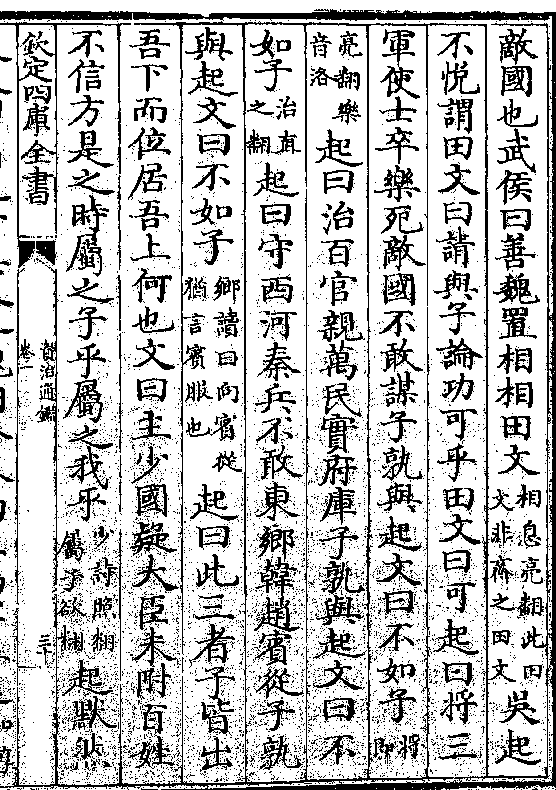 敵國也武侯曰善魏置相相田文相息亮翻此田文非齊之田文吳起
不悅謂田文曰請與子論功可乎田文曰可起曰將三
軍使士卒樂死敵國不敢謀子孰與起文曰不如子將即
亮翻樂音洛起曰治百官親萬民實府庫子孰與起文曰不
如子治直之翻起曰守西河秦兵不敢東鄉韓趙賓從子孰
與起文曰不如子鄉讀曰向賓從猶言賓服也起曰此三者子皆出
吾下而位居吾上何也文曰主少國疑大臣未附百姓
不信方是之時屬之子乎屬之我乎少詩照翻屬予欲翻起默然
欽定四庫全書
資治通鑑
卷一
三十